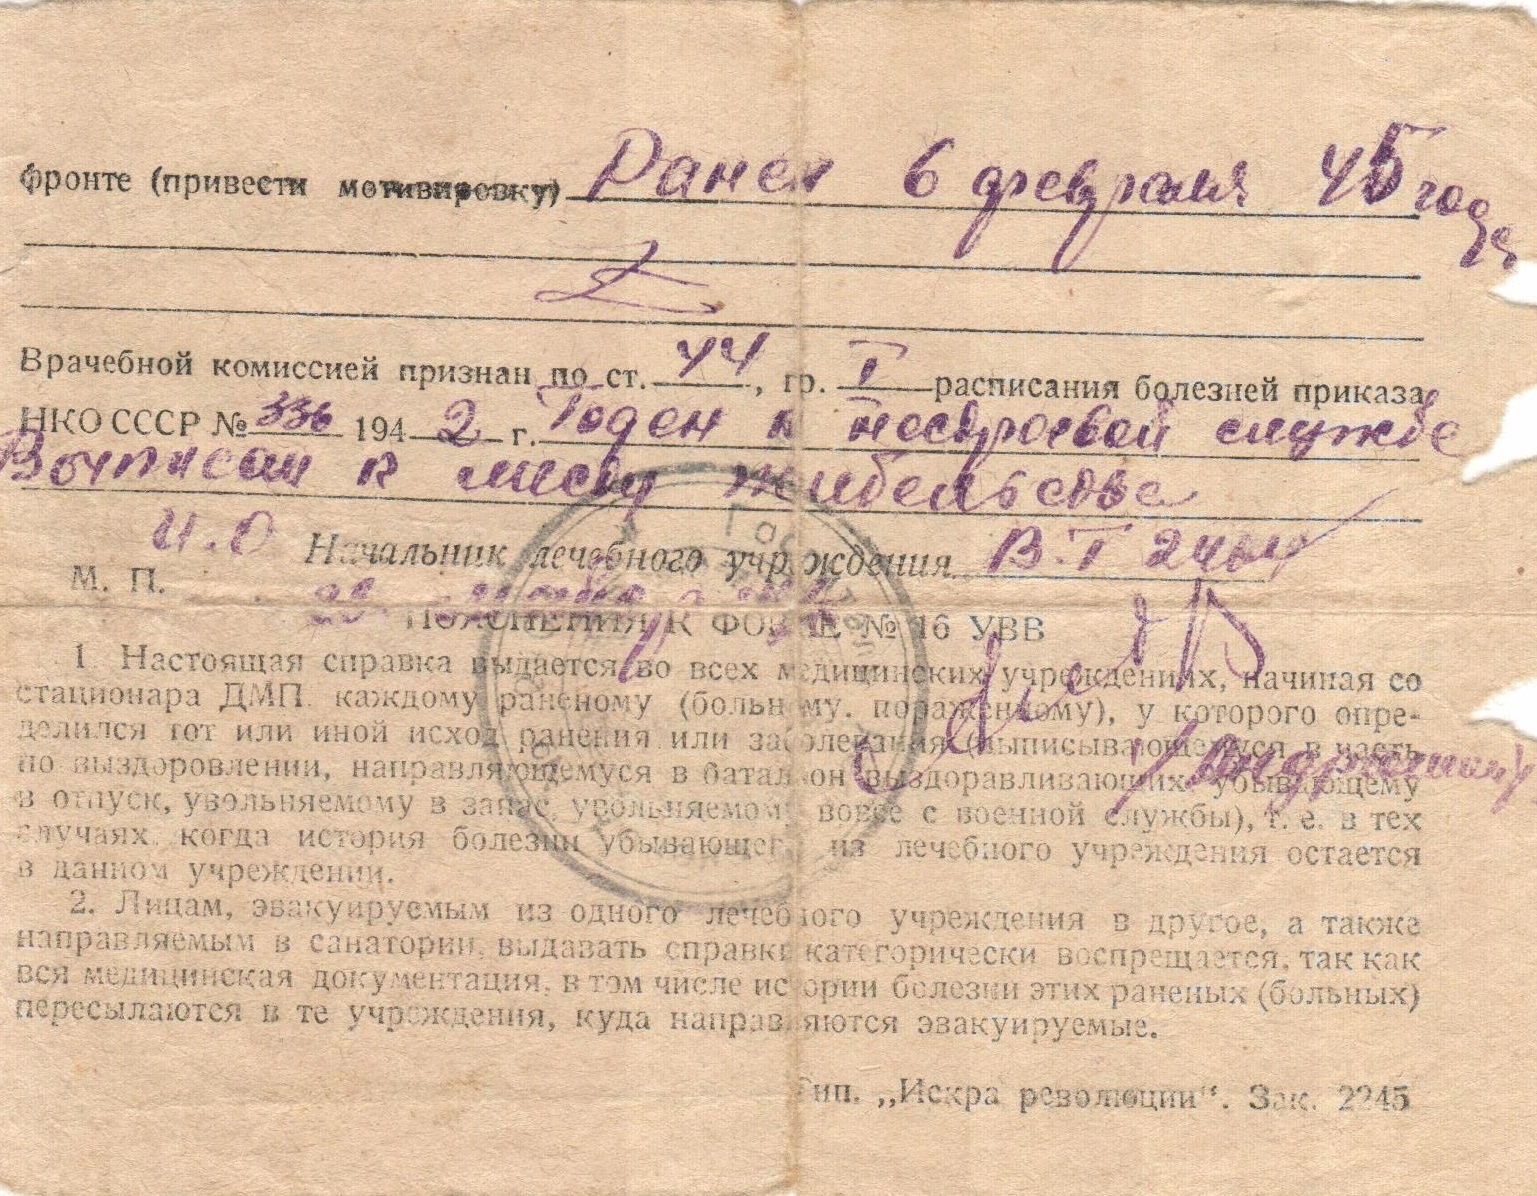 фронте (привести мотивировку) Ранен 6 февраля 45 года
Врачебной комиссией признан по ст. 44, гр. I расписания болезней приказа
НКО СССР № 336 1942 г. Годен к нестроевой службе
Выписан к месту жительства
И.О Начальник лечебного учреждения
М. П.
ПОЯСНЕНИЯ К ФОРМЕ № 16 УВВ
1 Настоящая справка выдается во всех медицинских учреждениях, начиная со
стационара ДМП каждому раненому (больному, пораженному), у которого опре-
делился тот или иной исход ранения или заболевания (выписывающемуся в часть
по выздоровлении, направляющемуся в батальон выздоравливающих, убывающему
в отпуск, увольняемому в запас, увольняемому вовсе с военной службы), т. е. в тех
случаях когда история болезни убывающего из лечебного учреждения остается
в данном учреждении.
2. Лицам, эвакуируемым из одного лечебного учреждения в другое, а также
направляемым в санатории, выдавать справки категорически воспрещается, так как
вся медицинская документация, в том числе истории болезни этих раненых (больных)
пересылаются в те учреждения, куда направляются эвакуируемые.
Тип. „Искра революции“. Зак. 2245